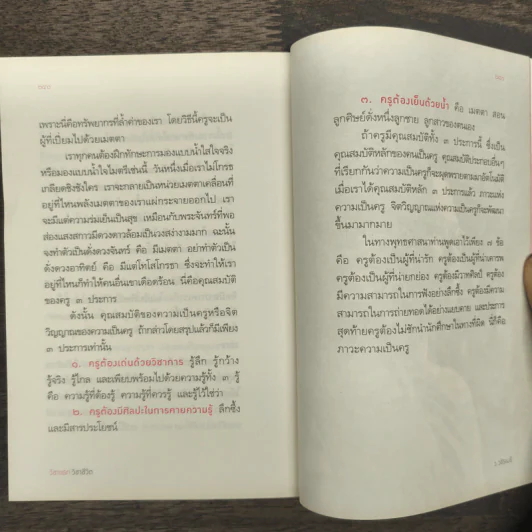 เพราะนี่คือทรัพยากรที่ล้ำค่าของเรา โดยวิธีนี้ครูจะเป็น
ผู้ที่เปี่ยมไปด้วยเมตตา
เราทุกคนต้องฝึกทักษะการมองแบบน้ำใสใจจริง
หรือมองแบบน้ำใจไมตรีเช่นนี้ วันหนึ่งเมื่อเราไม่โกรธ
เกลียดชิงชังใคร เราจะกลายเป็นหน่วยเมตตาเคลื่อนที่
อยู่ที่ไหนพลังเมตตาของเราแผ่กระจายออกไป เรา
จะมีแต่ความร่มเย็นเป็นสุข เหมือนกับพระจันทร์ที่พอ
ส่องแสงสกาวมีดวงดาวล้อมเป็นวงสง่างามมาก ฉะนั้น
จงทำตัวเป็นดั่งดวงจันทร์ คือ มีเมตตา อย่าทำตัวเป็น
ดั่งดวงอาทิตย์ คือ มีแต่โทโสโกรธา ซึ่งจะทำให้เรา
อยู่ที่ไหนก็ทำให้คนอื่นเขาเดือดร้อน นี่คือคุณสมบัติ
ของครู ๓ ประการ
ดังนั้น คุณสมบัติของความเป็นครูหรือจิต
วิญญาณของความเป็นครู ถ้ากล่าวโดยสรุปแล้วก็มีเพียง
๓ ประการเท่านั้น
๑. ครูต้องเด่นด้วยวิชาการ รู้ลึก รู้กว้าง
รู้จริง รู้ไกล และเพียบพร้อมไปด้วยความรู้ทั้ง ๓ รู้
คือ ความรู้ที่ต้องรู้ ความรู้ที่ควรรู้ และรู้ไว้ใช่ว่า
๒. ครูต้องมีศิลปะในการถ่ายความรู้ ลึกซึ้ง
และมีสารประโยชน์
วิชาชีวิต
๓. ครูต้องเย็นด้วยน้ำ คือ เมตตา สอน
ลูกศิษย์ดั่งหนึ่งลูกชาย ลูกสาวของตนเอง
ถ้าครูมีคุณสมบัติทั้ง ๓ ประการนี้ ซึ่งเป็น
คุณสมบัติหลักของคนเป็นครู คุณสมบัติประกอบอื่นๆ
ที่เรียกกันว่าความเป็นครูก็จะผุดพรายตามมาอัตโนมัติ
เมื่อเราได้คุณสมบัติหลัก ๓ ประการแล้ว ภาวะแห่ง
ความเป็นครู จิตวิญญาณแห่งความเป็นครูก็จะพัฒนา
ขึ้นมามากมาย
ในทางพุทธศาสนาท่านพูดเอาไว้เพียง ๗ ข้อ
คือ ครูต้องเป็นผู้ที่น่ารัก ครูต้องเป็นผู้ที่น่าเคารพ
ครูต้องเป็นผู้ที่น่ายกย่อง ครูต้องมีวาทศิลป์ ครูต้อง
มีความสามารถในการฟังอย่างลึกซึ้ง ครูต้องมีความ
สามารถในการถ่ายทอดได้อย่างแยบคาย และประการ
สุดท้ายครูต้องไม่ชักนำนักศึกษาในทางที่ผิด นี่ก็คือ
ภาวะความเป็นครู
ว.วชิรเมธี